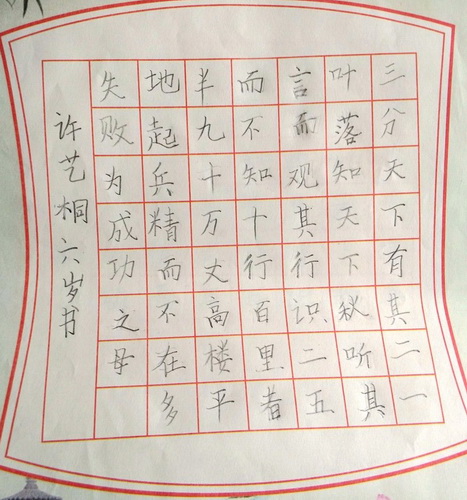 三分天下有其二一
叶落知天下秋听其
言而观其行识二五
而不知十行百里者
半九十万丈高楼平
地起兵精而不在多
失败为成功之母
许艺桐六岁书